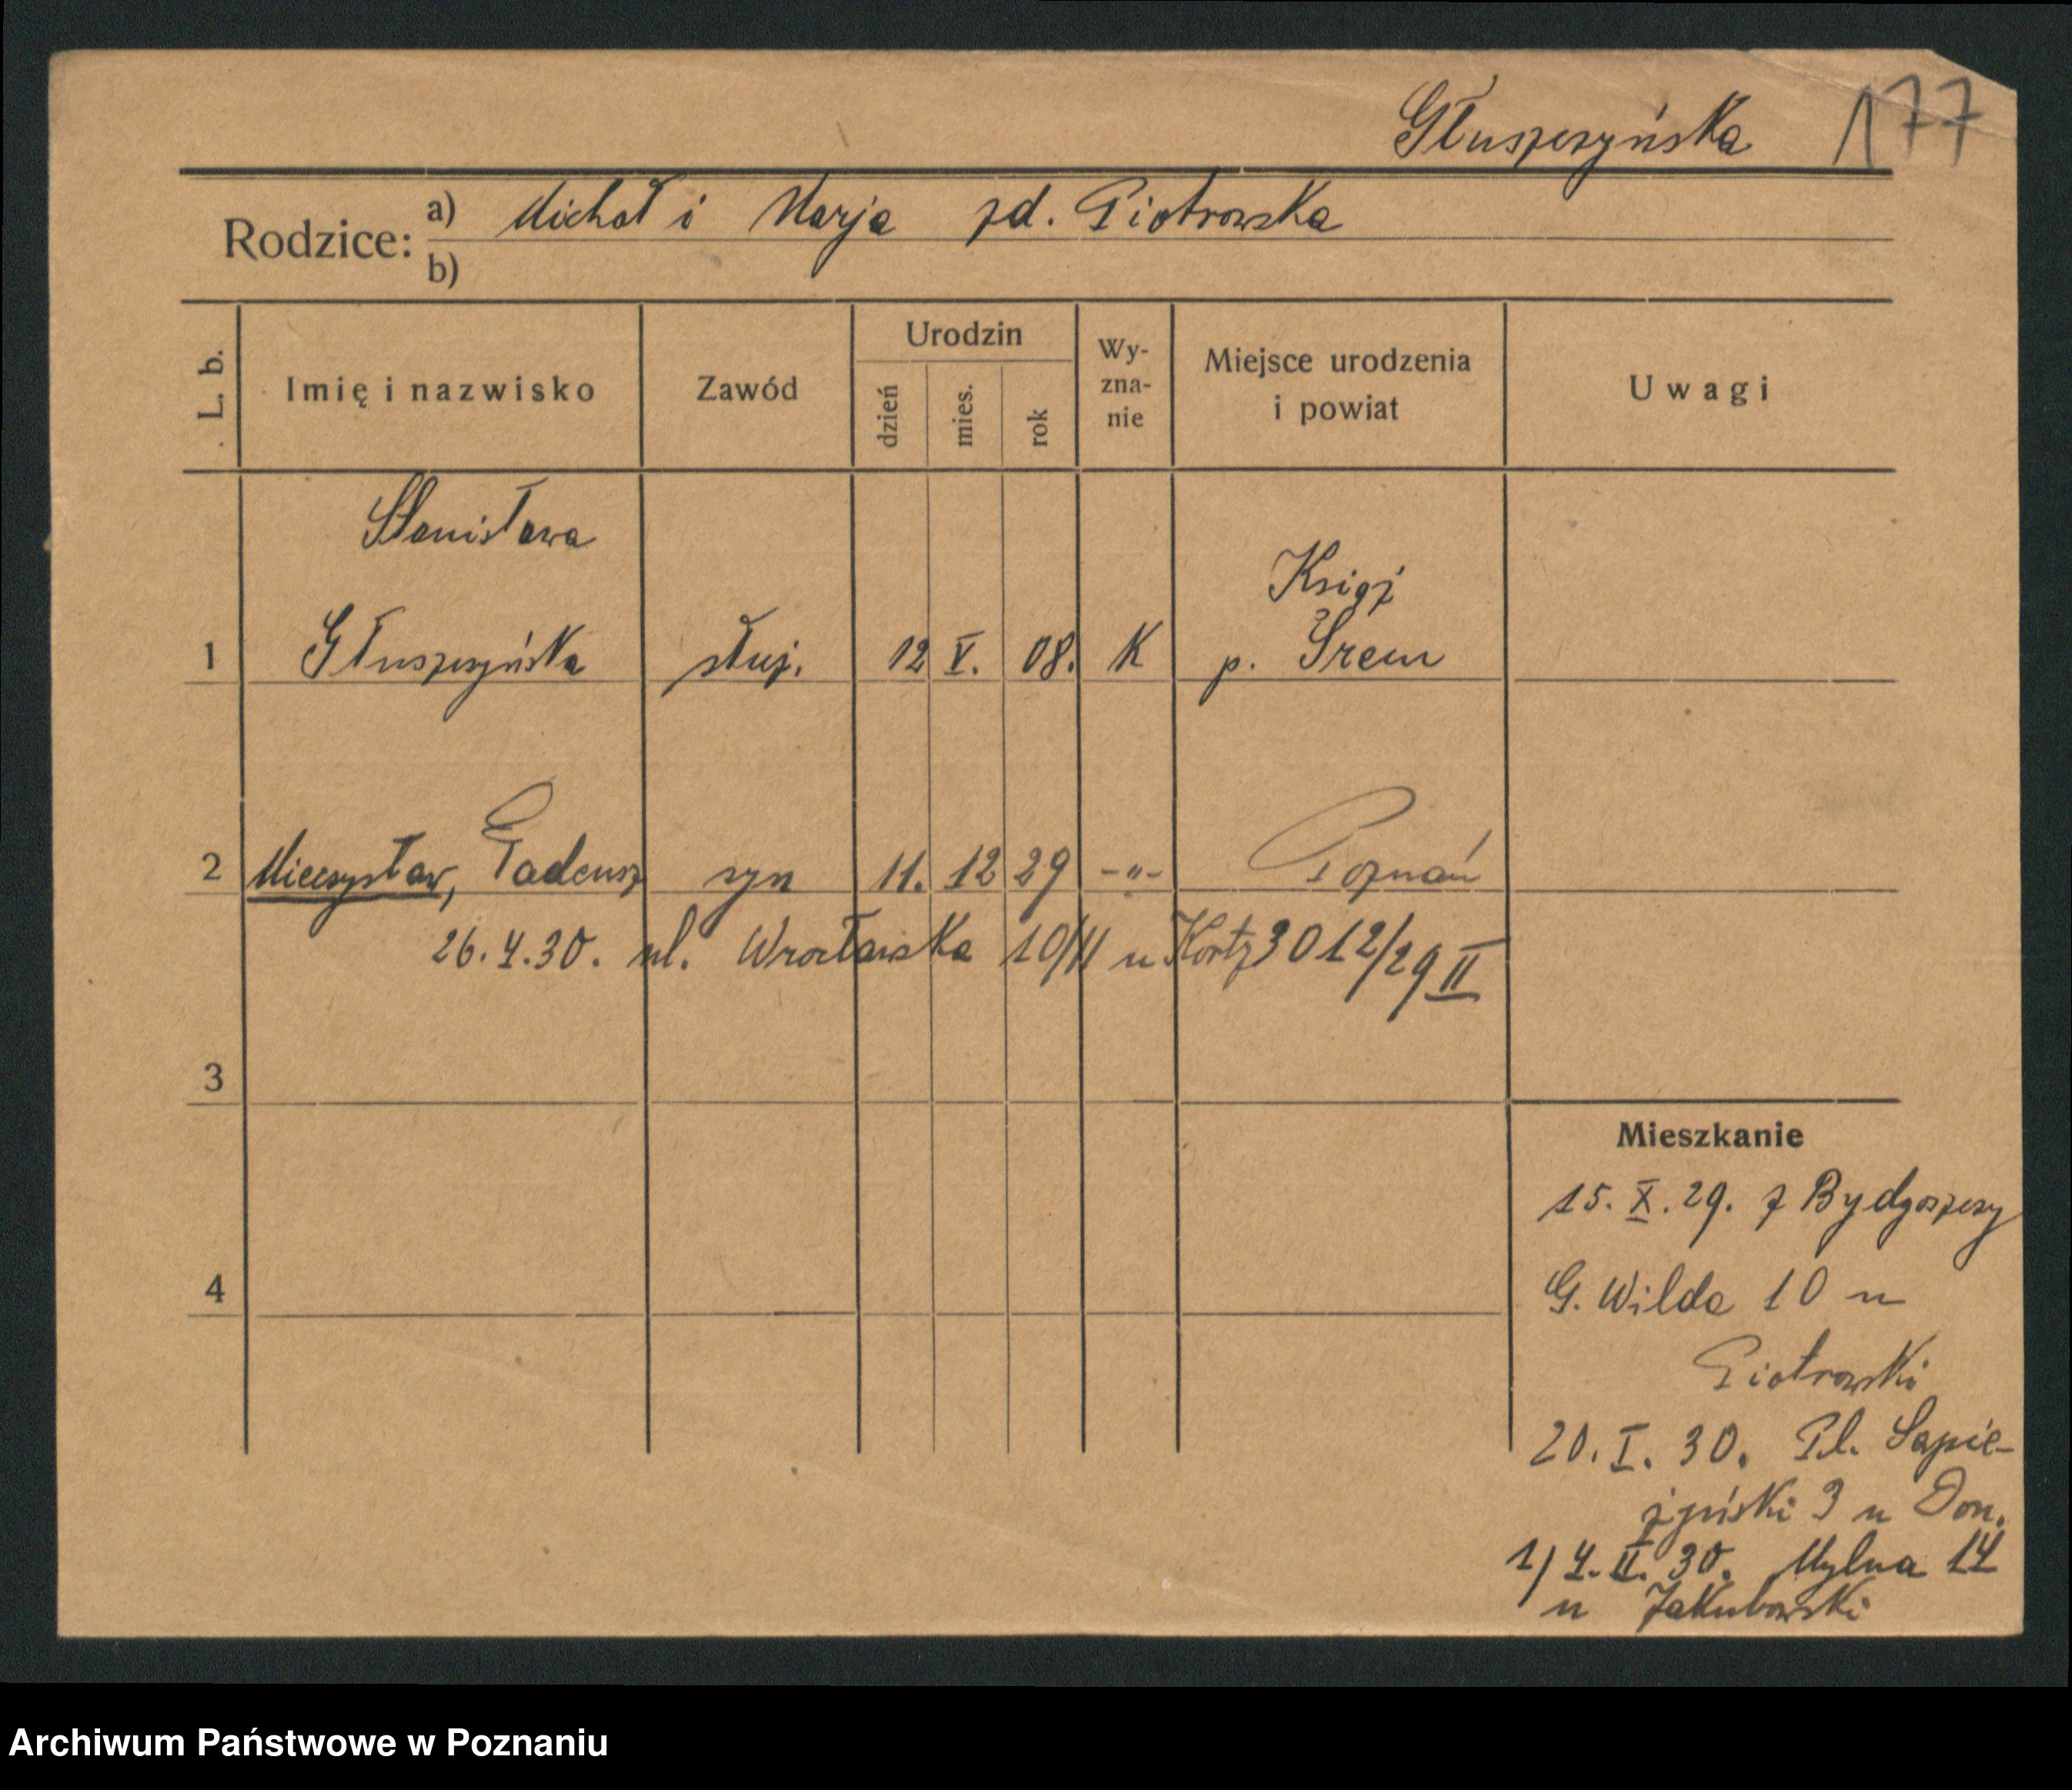 Głuszczyńska 177
Rodzice: a) Michał i Marja zd. Piotrowska
b)
L. b. Imię i nazwisko Zawód Urodzin dzień mies. rok Wy-zna-nie Miejsce urodzenia i powiat Uwagi
Stanisława
Książ
1 Głuszczyńska służ. 12 V. 08. K p. Śrem
2 Mieczysław, Tadeusz syn 11. 12 29 -"- Poznań
26.4.30. ul. Wrocławska 10/11 u 3012/29 II
3
Mieszkanie
15. X. 29. z Bydgoszczy
4
G. Wilda 10 u
Piotrowski
20. I. 30. Pl. Sapie-
żyński 3 u Dom.
1) 4. II. 30. Mylna 14
u Jakubowski
Archiwum Państwowe w Poznaniu